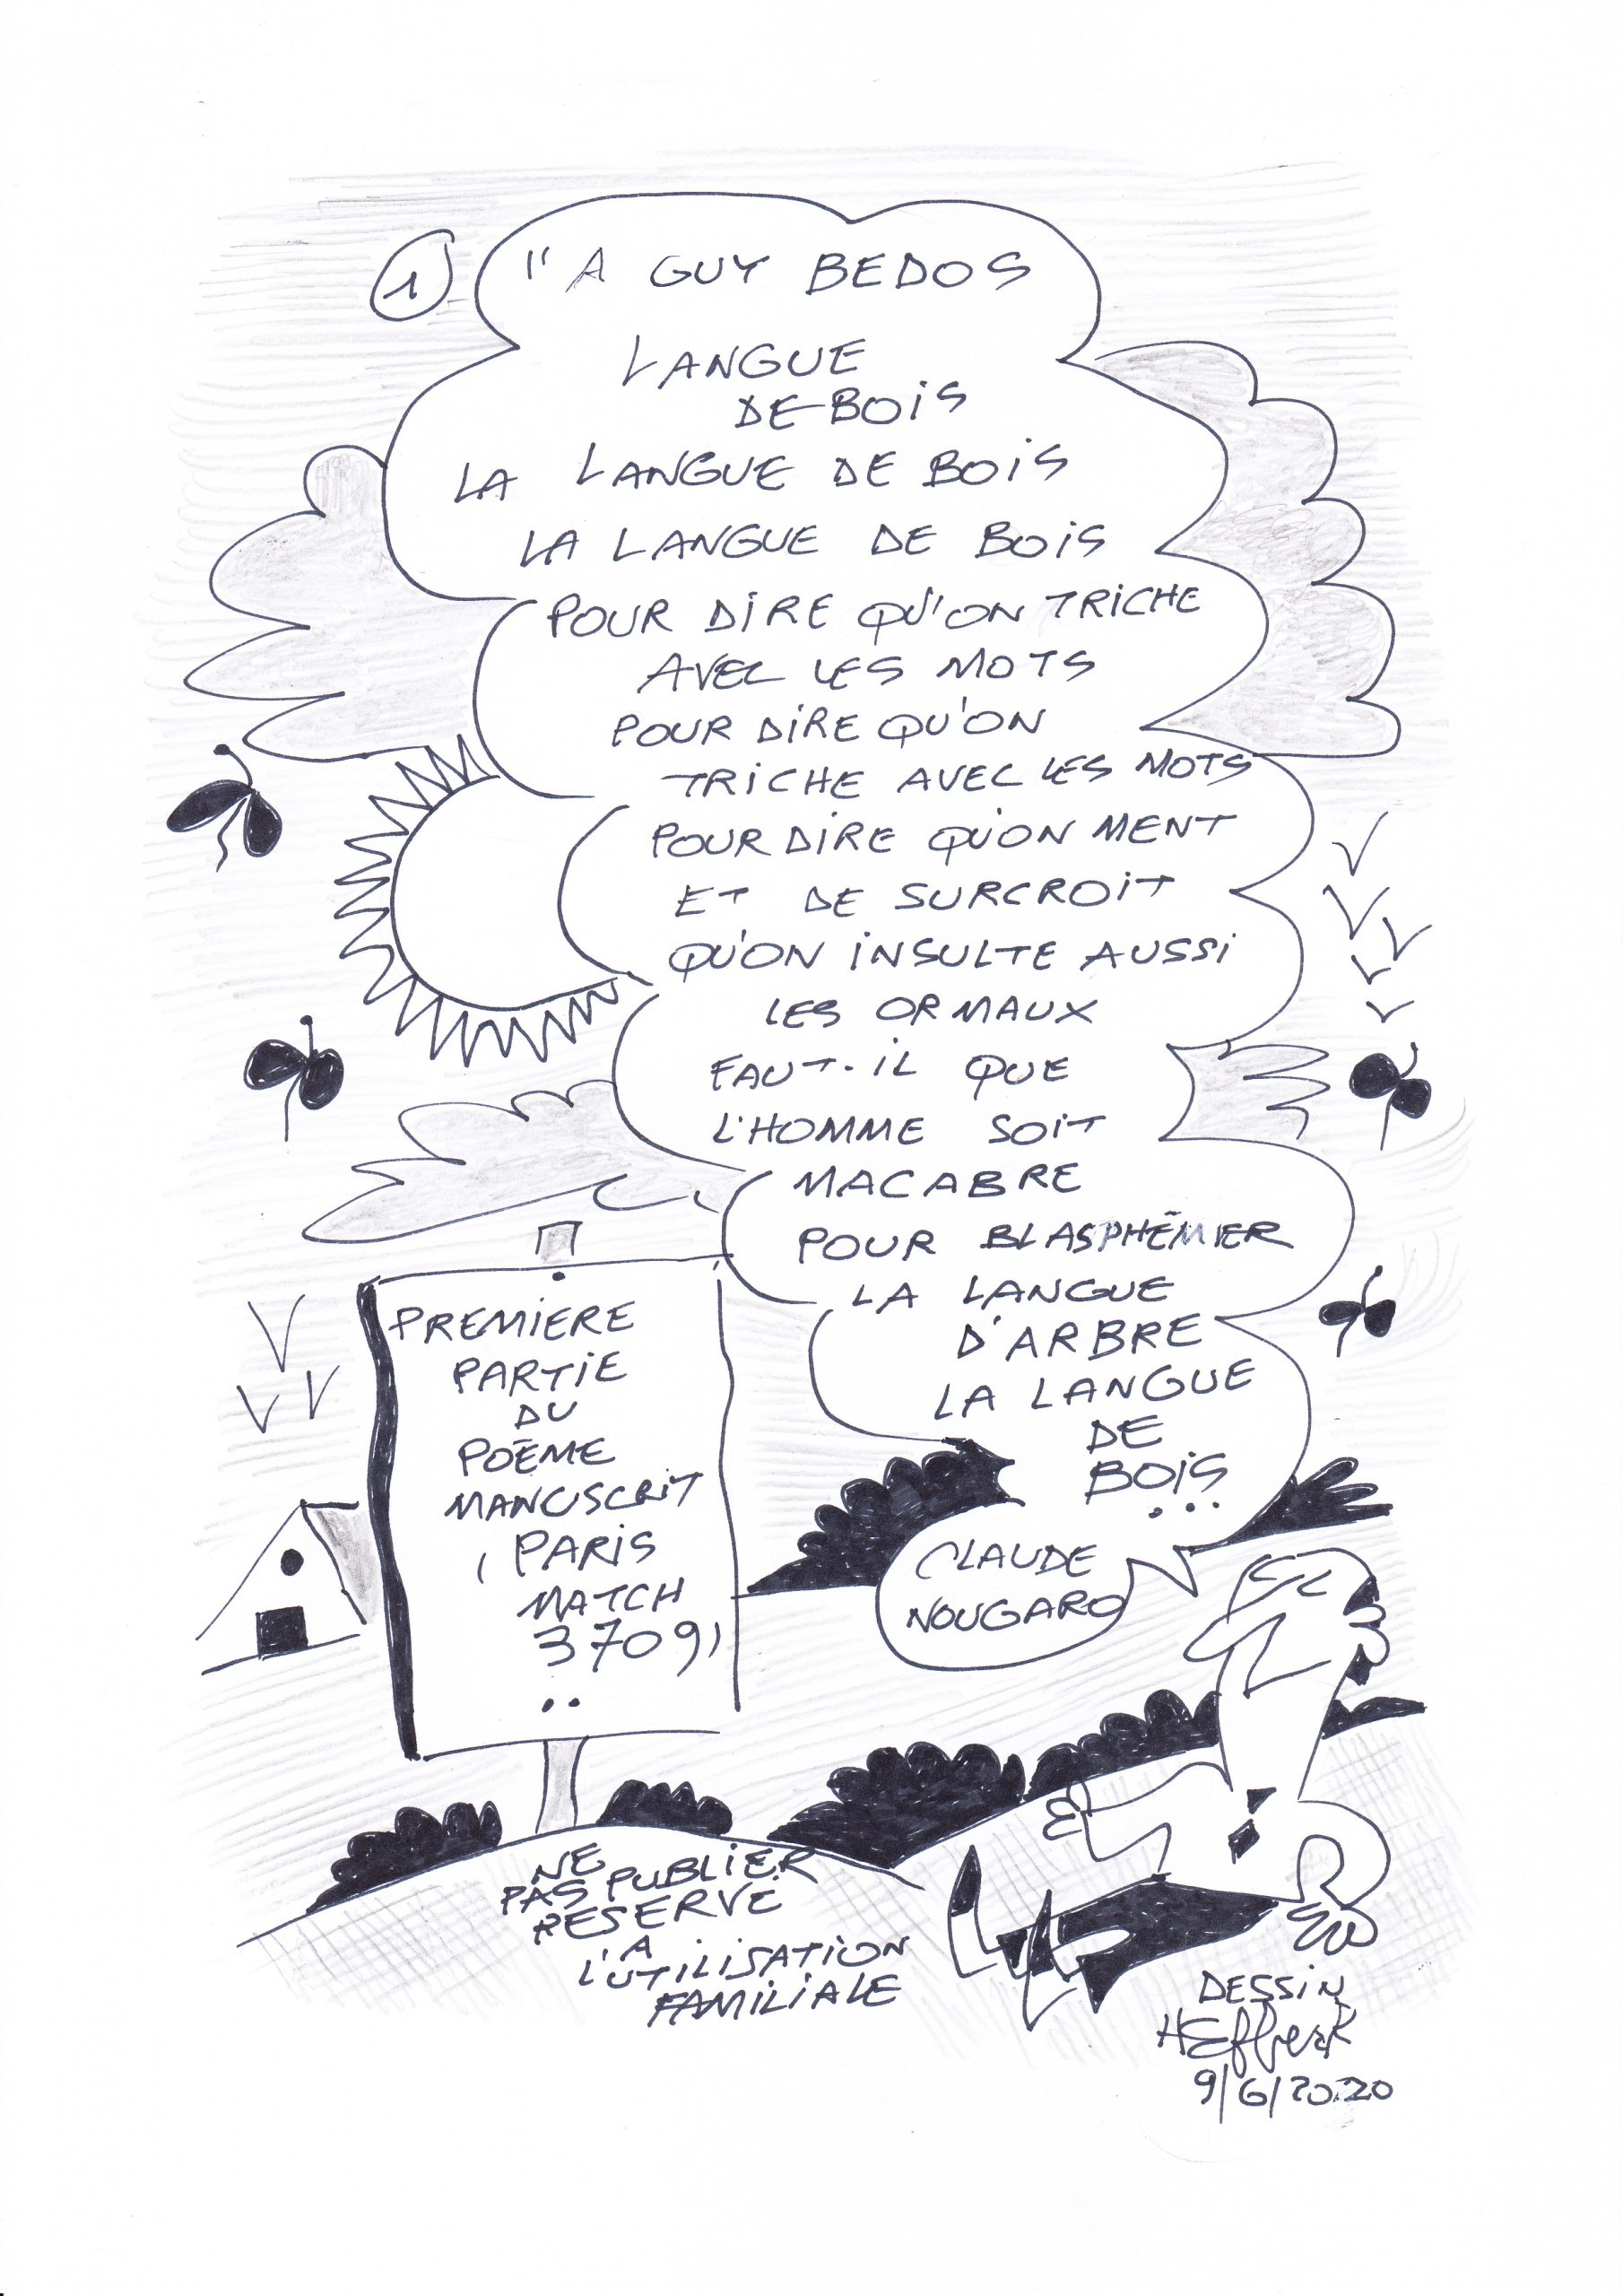 1
"A GUY BEDOS
LANGUE
DE BOIS
LA LANGUE DE BOIS
LA LANGUE DE BOIS
POUR DIRE QU'ON TRICHE
AVEC LES MOTS
POUR DIRE QU'ON
TRICHE AVEC LES MOTS
POUR DIRE QU'ON MENT
ET DE SURCROIT
QU'ON INSULTE AUSSI
LES ORMAUX
FAUT-IL QUE
L'HOMME SOIT
MACABRE
POUR BLASPHÉMER
LA LANGUE
D'ARBRE
LA LANGUE
DE
BOIS
...
CLAUDE
NOUGARO
PREMIERE
PARTIE
DU
POÈME
MANUSCRIT
(PARIS
MATCH
3709)
..
NE
PAS PUBLIER
RESERVÉ
A
L'UTILISATION
FAMILIALE
DESSIN
9/6/2020